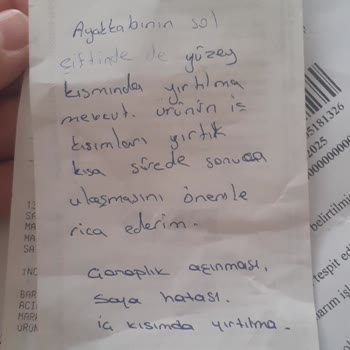 Ayakkabının sol
çiftinde de yüzey
kısmında yırtılma
mevcut. ürünün iç
kısımları yırtık
kısa sürede sonuca
ulaşmasını önemle
rica ederim.
Çoraplık aşınması.
Saya hatası.
iç kısımda yırtılma.
35181326
2025
belirtilmi
tespit edi